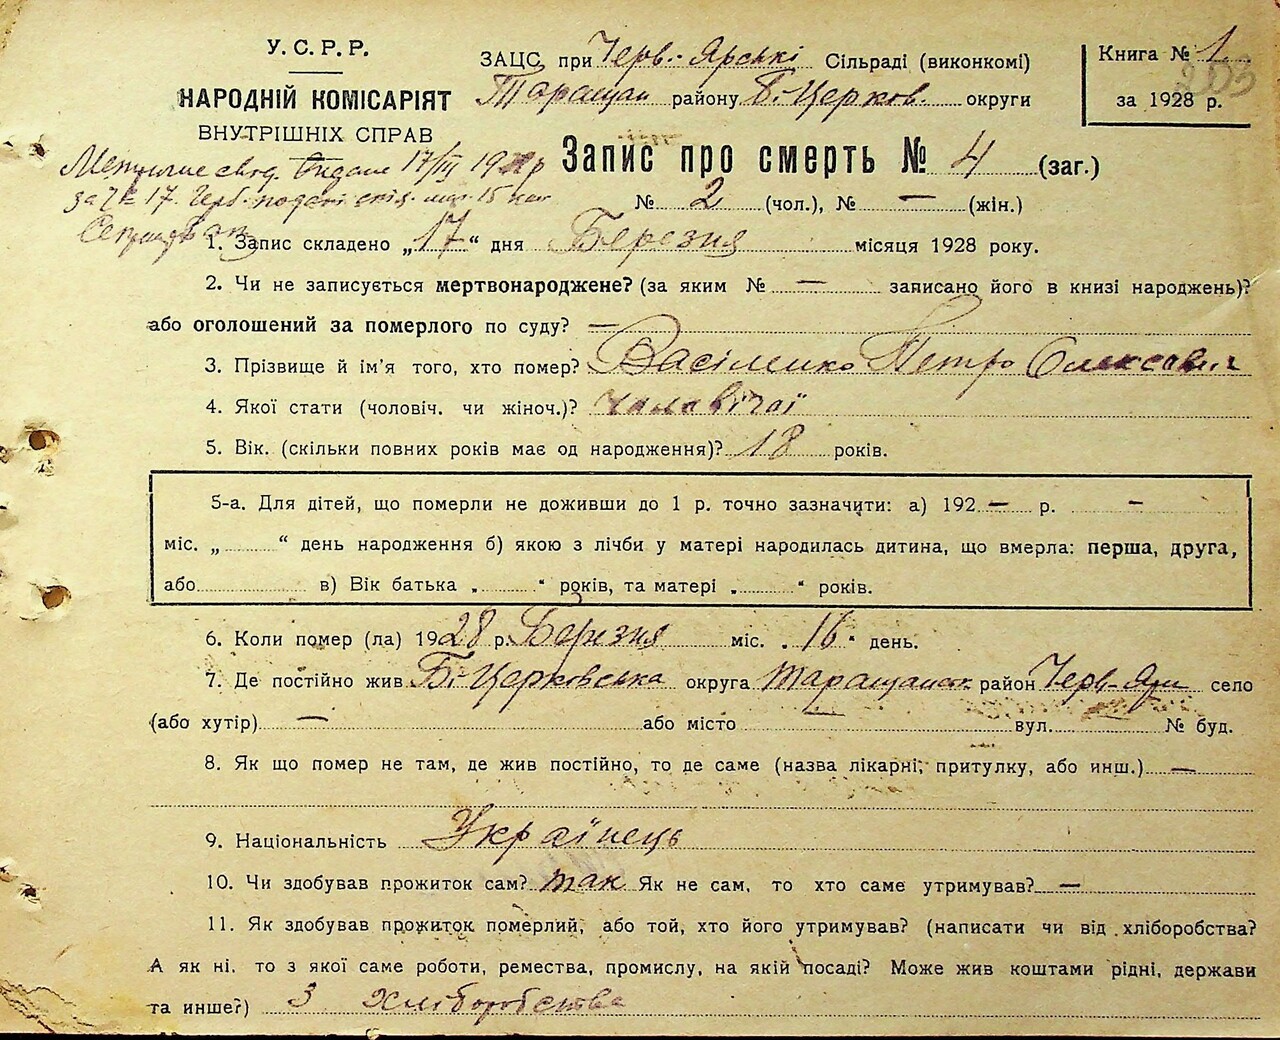 У. С. Р. Р.
НАРОДНІЙ КОМІСАРІЯТ
ВНУТРІШНІХ СПРАВ
ЗАЦС. при Черв.-Ярські Сільраді (виконкомі)
Таращан району Б. Церков. округи
Книга № 1
за 1928 р.
Запис про смерть № 4 (заг.)
№ 2 (чол.), № — (жін.)
видане 17/III
за № 17.
1. Запис складено „17“ дня Березня місяця 1928 року.
2. Чи не записується мертвонароджене? (за яким № — записано його в книзі народжень)?
або оголошений за померлого по суду? —
3. Прізвище й ім'я того, хто помер? Васіленко Петро Олексавич
4. Якої стати (чоловіч. чи жіноч.)? чоловічої
5. Вік. (скільки повних років має од народження)? 18 років.
5-а. Для дітей, що померли не доживши до 1 р. точно зазначити: а) 192 — р. —
міс. „ “ день народження б) якою з лічби у матері народилась дитина, що вмерла: перша, друга,
або в) Вік батька „ “ років, та матері „ “ років.
6. Коли помер (ла) 1928 р. Березня міс. „16“ день.
7. Де постійно жив Б.-Церковська округа Таращанск район Черв-Яри село
(або хутір) — або місто — вул. — № буд.
8. Як що помер не там, де жив постійно, то де саме (назва лікарні, притулку, або инш.) —
9. Національність Українець
10. Чи здобував прожиток сам? так Як не сам, то хто саме утримував? —
11. Як здобував прожиток померлий, або той, хто його утримував? (написати чи від хліборобства?
А як ні, то з якої саме роботи, ремества, промислу, на якій посаді? Може жив коштами рідні, держави
та инше?) З Хліборобства